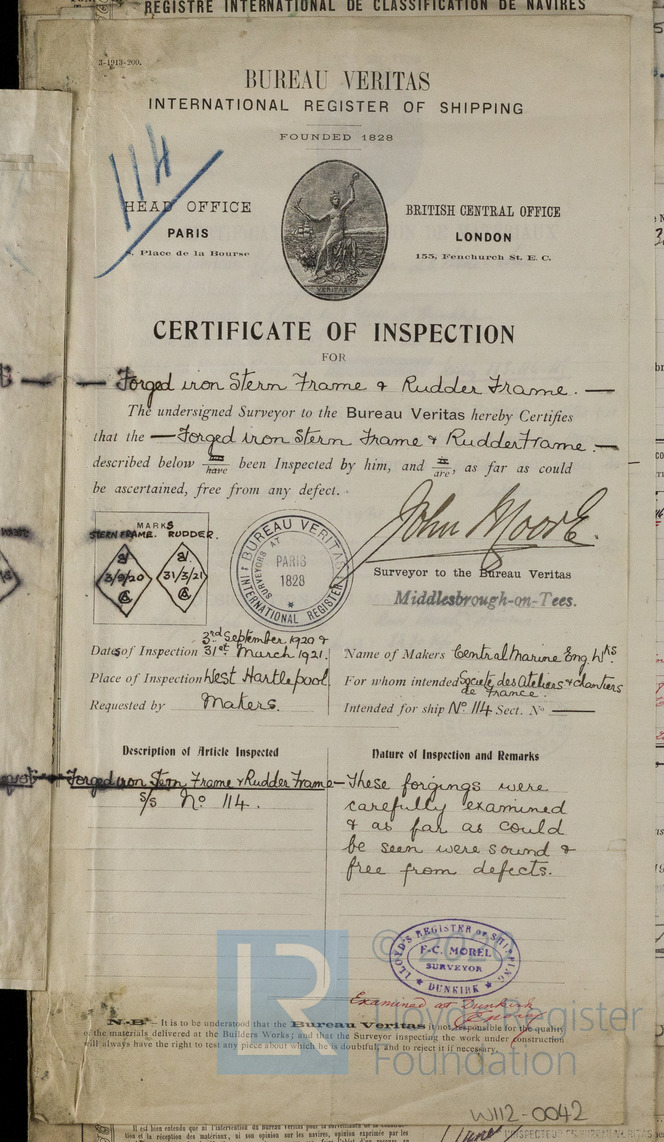 REGISTRE INTERNATIONAL DE CLASSIFICATION DE NAVIRES
3-1913-200.
BUREAU VERITAS
INTERNATIONAL REGISTER OF SHIPPING
FOUNDED 1828
114
HEAD OFFICE
PARIS
Place de la Bourse
VERITAS
BRITISH CENTRAL OFFICE
LONDON
155, Fenchurch St. E. C.
CERTIFICATE OF INSPECTION
FOR
— Forged iron Stern Frame & Rudder Frame. —
The undersigned Surveyor to the Bureau Veritas hereby Certifies
that the — Forged iron Stern Frame & Rudder Frame. —
described below have been Inspected by him, and are, as far as could
be ascertained, free from any defect.
John Moore.
Surveyor to the Bureau Veritas
Middlesbrough-on-Tees.
MARKS
STERN FRAME. RUDDER.
3/9/20 31/3/21
BUREAU VERITAS
SURVEYORS AT
PARIS
1828
INTERNATIONAL REGISTER
3rd September 1920 &
Dates of Inspection 31st March 1921.
Place of Inspection West Hartlepool
Requested by Makers.
Name of Makers Central Marine Eng. Wks
For whom intended Societe des Ateliers & chantiers
de France.
Intended for ship No 114 Sect. No —
Description of Article Inspected
Forged iron Stern Frame & Rudder Frame
S/S No 114.
Nature of Inspection and Remarks
These forgings were
carefully examined
& as far as could
be seen were sound &
free from defects.
LLOYD'S REGISTER OF SHIPPING
F-C. MOREL
SURVEYOR
DUNKIRK
Examined at Dunkirk
© 2020
LR
Lloyd's Register
Foundation
N.B — It is to be understood that the Bureau Veritas it not responsible for the quality
of the materials delivered at the Builders Works; and that the Surveyor inspecting the work under construction
will always have the right to test any piece about which he is doubtful, and to reject it if necessary.
W112-0042
Il est bien entendu que ni l'intervention du Bureau Veritas pour la surveillance de la
tion et la réception des matériaux, ni son opinion sur les navires, opinion exprimée par les